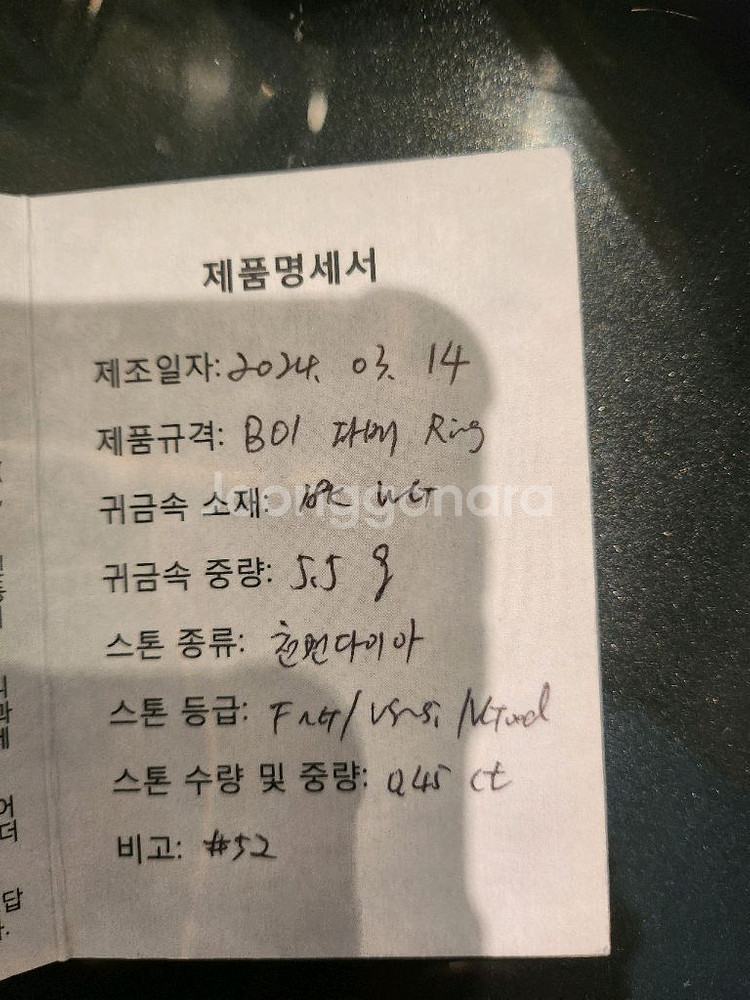 제품명세서
제조일자: 2024. 03. 14
제품규격: B01 파베 Ring
귀금속 소재: 18K WG
joonggonara
귀금속 중량: 5.5 g
스톤 종류: 천연다이아
스톤 등급: F~G / VS~SI /
스톤 수량 및 중량: 0.45 ct
비고: #52
과
어
더
답